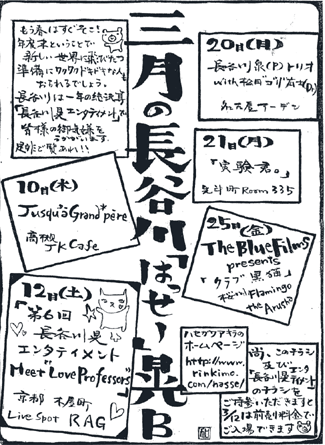 三月の長谷川「はっせー」晃B
もう春はすぐそこ！
年度末ということで
新しい世界に飛びたつ
準備にワクワクドキドキな人も
おられるでしょう。
長谷川は一年の総決算
「長谷川晃エンタティメント」で
皆様の御気嫌を
うかがいます。
是非ご覧あれ!!
10日(木)
Jusqu'à Grand'père
高槻
JK Cafe
12日(土)
「第6回
長谷川晃
エンタティメント
"Meet Love Professors"」
京都 木屋町
Live Spot RAG
20日(日)
長谷川泉(P)トリオ
with
名古屋
21日(月)
「実験君。」
北斗町Room335
25日(金)
The Blue Films
presents
「クラブ黒猫」
桜川Flamingo
the Arusha
ハセガワアキラの
ホームページ
http://www.
rinkimo.
com/hasse/
尚、このチラシ
又は
「長谷川晃エンタティメント」
のチラシを
ご持参いただきますと
3/12は前売り料金で
ご入場できます